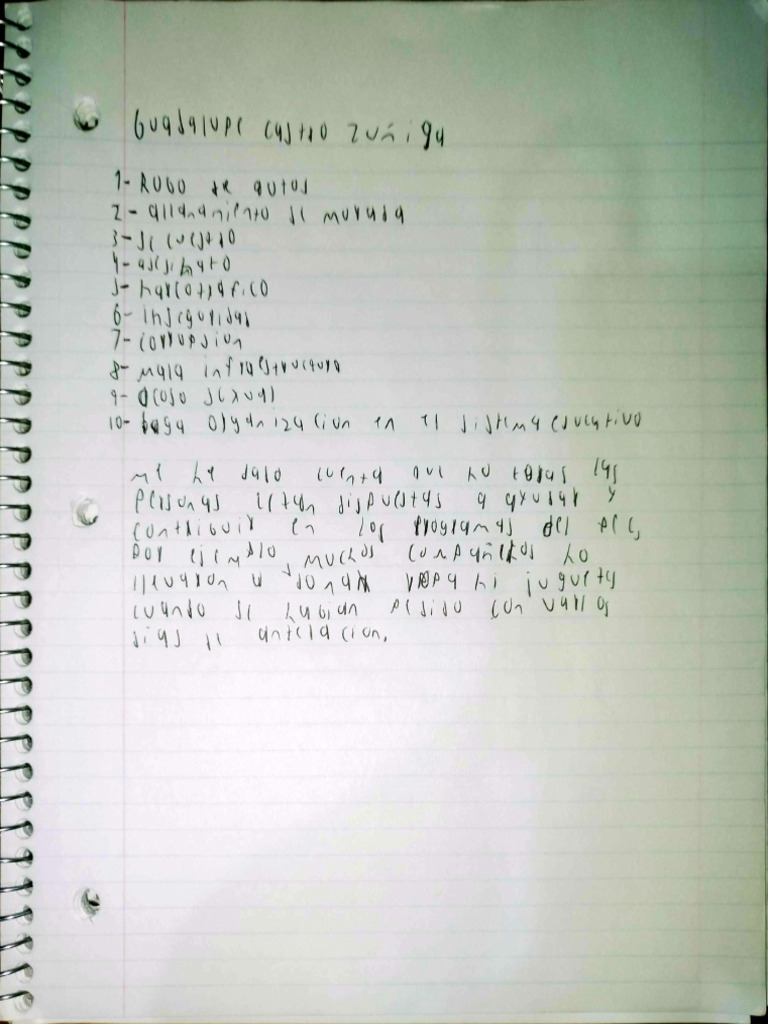 Guadalupe Castro Zuñiga
1- Robo de autos
2- allanamiento de morada
3- secuestro
4- asesinato
5- narcotrafico
6- inseguridad
7- corrupsion
8- mala infraestructura
9- acoso sexual
10- organizacion en el sistema educativo
me he dado cuenta que no todas las
personas estan dispuestas a ayudar y
contribuir en los programas del pec,
por ejemplo, muchos compañeros no
llevaron a donar ropa ni juguetes
cuando se habian pedido con varios
dias de antelacion.